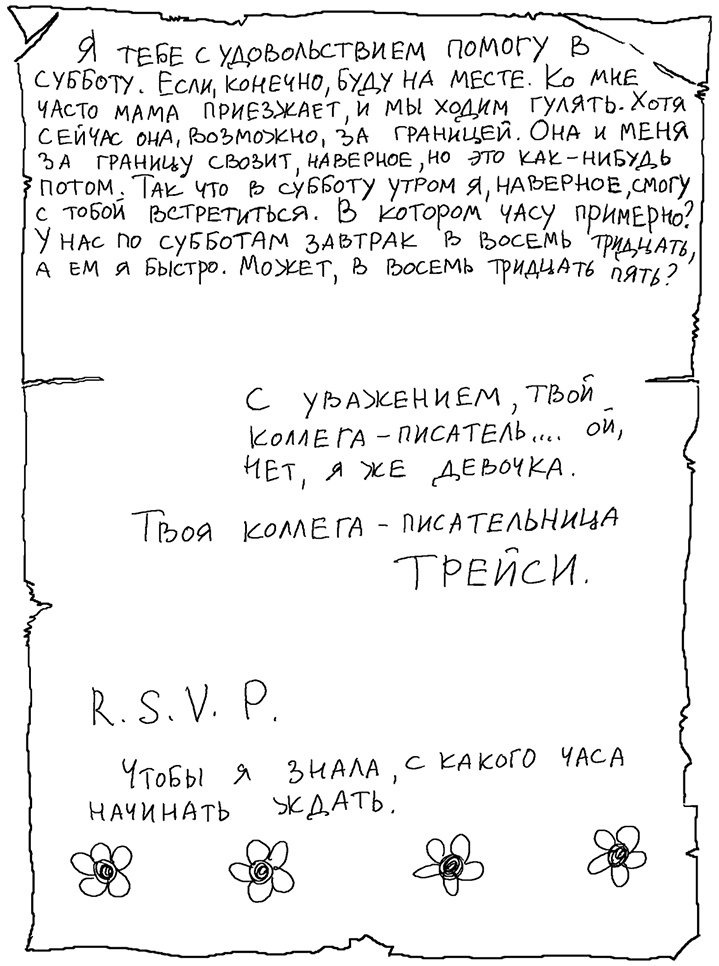 Я тебе с удовольствием помогу в
субботу. Если, конечно, буду на месте. Ко мне
часто мама приезжает, и мы ходим гулять. Хотя
сейчас она, возможно, за границей. Она и меня
за границу свозит, наверное, но это как-нибудь
потом. Так что в субботу утром я, наверное, смогу
с тобой встретиться. В котором часу примерно?
У нас по субботам завтрак в восемь тридцать,
а ем я быстро. Может, в восемь тридцать пять?
С уважением, твой
коллега-писатель.... ой,
нет, я же девочка.
Твоя коллега-писательница
ТРЕЙСИ.
R.S.V.P.
Чтобы я знала, с какого часа
начинать ждать.